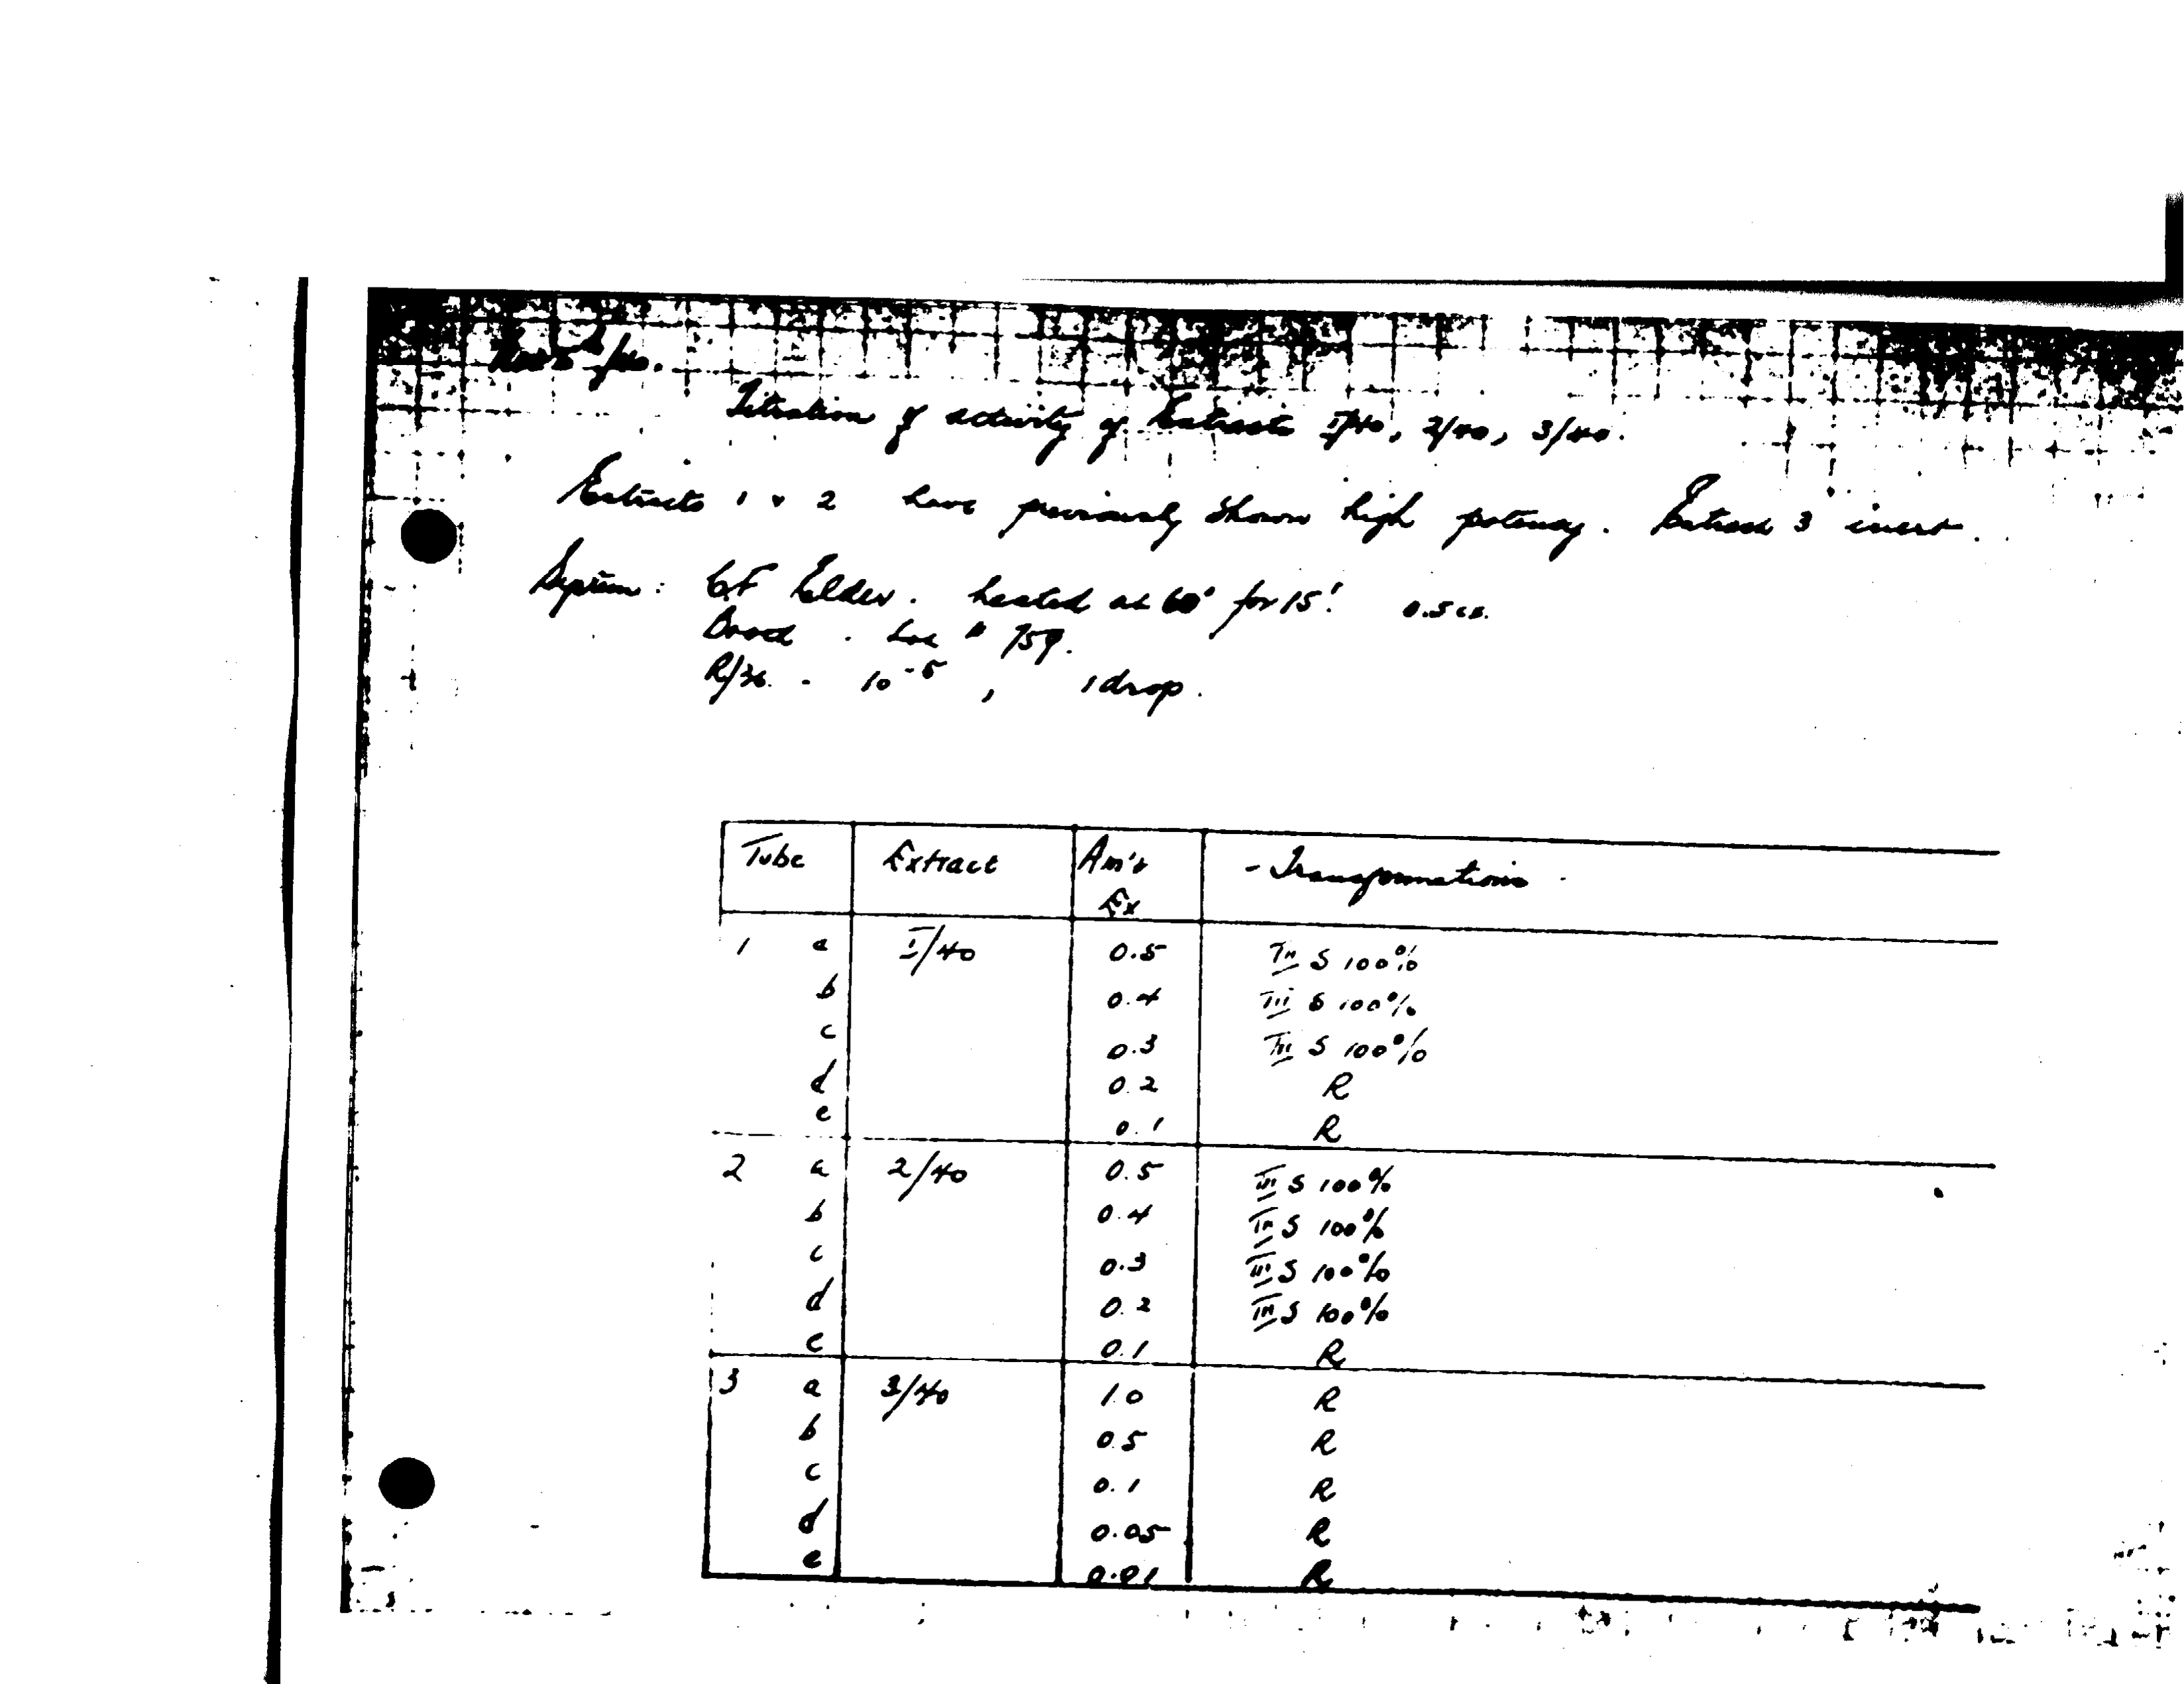 Titration of activity of Extracts I/40, 2/40, 3/40.
Extracts 1 & 2 have previously shown high potency. Extract 3 inert.
System: C.F. Elder. heated at 60° for 15' 0.5 cc.
Lot # 759.
R/36. - 10⁻⁵, 1 drop.
Tube Extract Am't Ex - Transformations -
1 a I/40 0.5 III S 100%
b 0.4 III S 100%
c 0.3 III S 100%
d 0.2 R
e 0.1 R
2 a 2/40 0.5 III S 100%
b 0.4 III S 100%
c 0.3 III S 100%
d 0.2 III S 100%
e 0.1 R
3 a 3/40 1.0 R
b 0.5 R
c 0.1 R
d 0.05 R
e 0.01 R